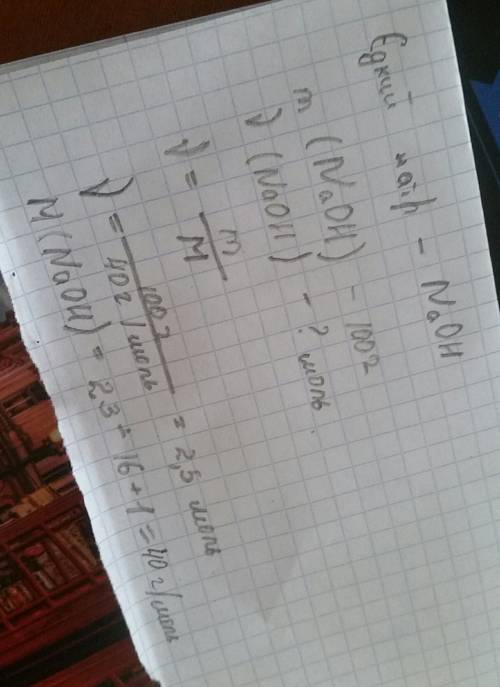 Едкий натр - NaOH
m (NaOH) - 100г
ν (NaOH) - ? моль.
ν = m / M
ν = 100г / 40г/моль = 2,5 моль
M(NaOH) = 23 + 16 + 1 = 40г/моль